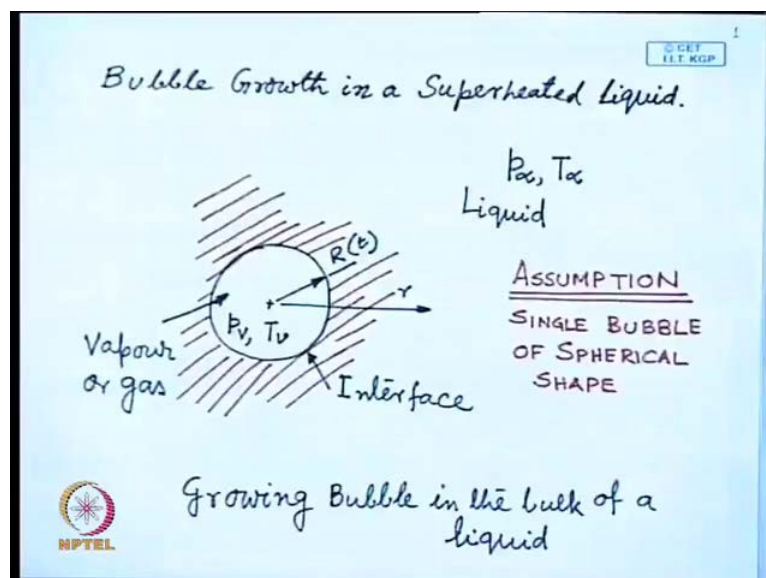 1
© CET
I.I.T. KGP
Bubble Growth in a Superheated Liquid.
p∝, T∝
Liquid
R(t)
r
pv, Tv
Vapour
or gas
Interface
ASSUMPTION
SINGLE BUBBLE
OF SPHERICAL
SHAPE
Growing Bubble in the bulk of a
liquid
NPTEL